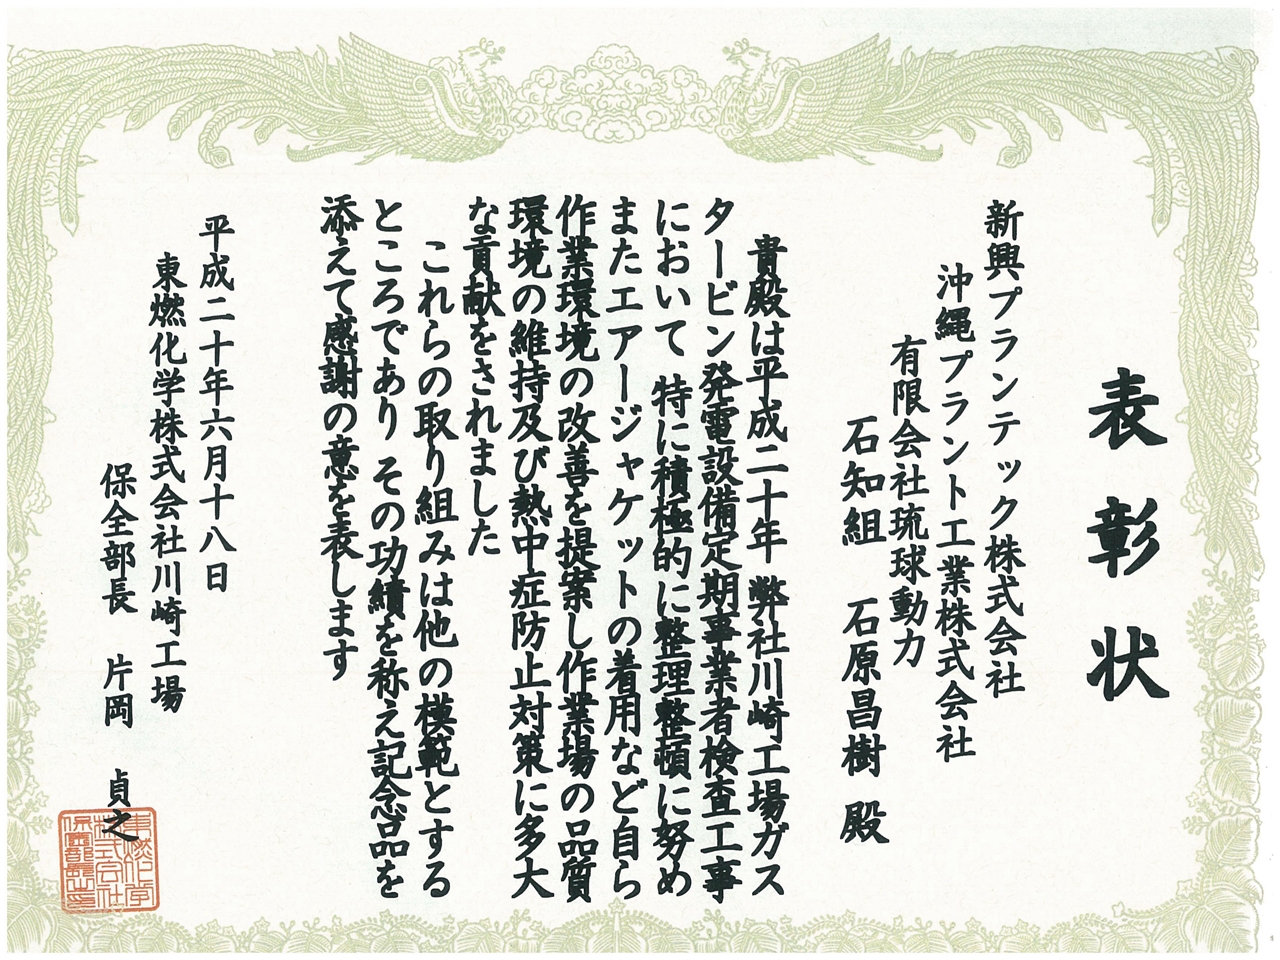 表彰状
新興プランテック株式会社
沖縄プラント工業株式会社
有限会社琉球動力
石知組 石原昌樹 殿
貴殿は平成二十年 弊社川崎工場ガス
タービン発電設備定期事業者検査工事
において 特に積極的に整理整頓に努め
またエアージャケットの着用など自ら
作業環境の改善を提案し作業場の品質
環境の維持及び熱中症防止対策に多大
な貢献をされました
これらの取り組みは他の模範とする
ところであり その功績を称え記念品を
添えて感謝の意を表します
平成二十年六月十八日
東燃化学株式会社川崎工場
保全部長 片岡 貞之